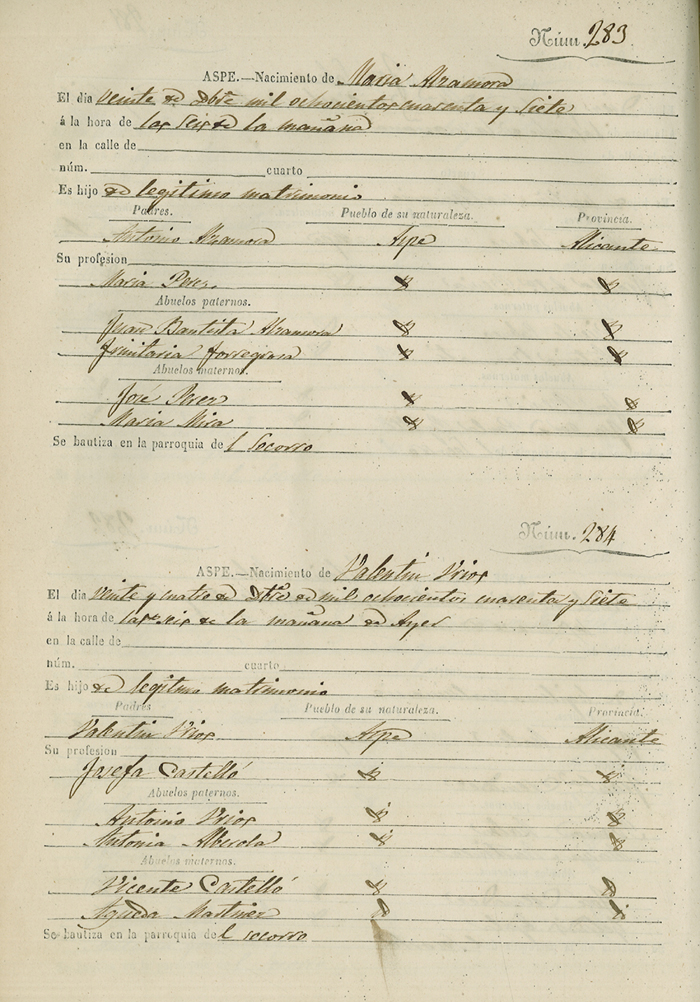 Núm. 283
ASPE.—Nacimiento de Maria Alzamora
El dia veinte de Dbre mil ochocientos cuarenta y siete
á la hora de las seis de la mañana
en la calle de
núm. cuarto
Es hijo de legitimo matrimonio
Padres. Pueblo de su naturaleza. Provincia.
Antonio Alzamora Aspe Alicante
Su profesion
Maria Perez
Abuelos paternos.
Juan Bautista Alzamora
Trinitaria Torregrosa
Abuelos maternos.
José Perez
Maria Mira
Se bautiza en la parroquia del Socorro
Núm. 284
ASPE.—Nacimiento de Valentin Urios
El dia veinte y cuatro de Dbre de mil ochocientos cuarenta y siete
á la hora de las seis de la mañana de Ayer
en la calle de
núm. cuarto
Es hijo de legitimo matrimonio
Padres Pueblo de su naturaleza. Provincia.
Valentin Urios Aspe Alicante
Su profesion
Josefa Castelló
Abuelos paternos.
Antonio Urios
Antonia Alberola
Abuelos maternos.
Vicente Castelló
Agueda Martinez
Se bautiza en la parroquia del Socorro